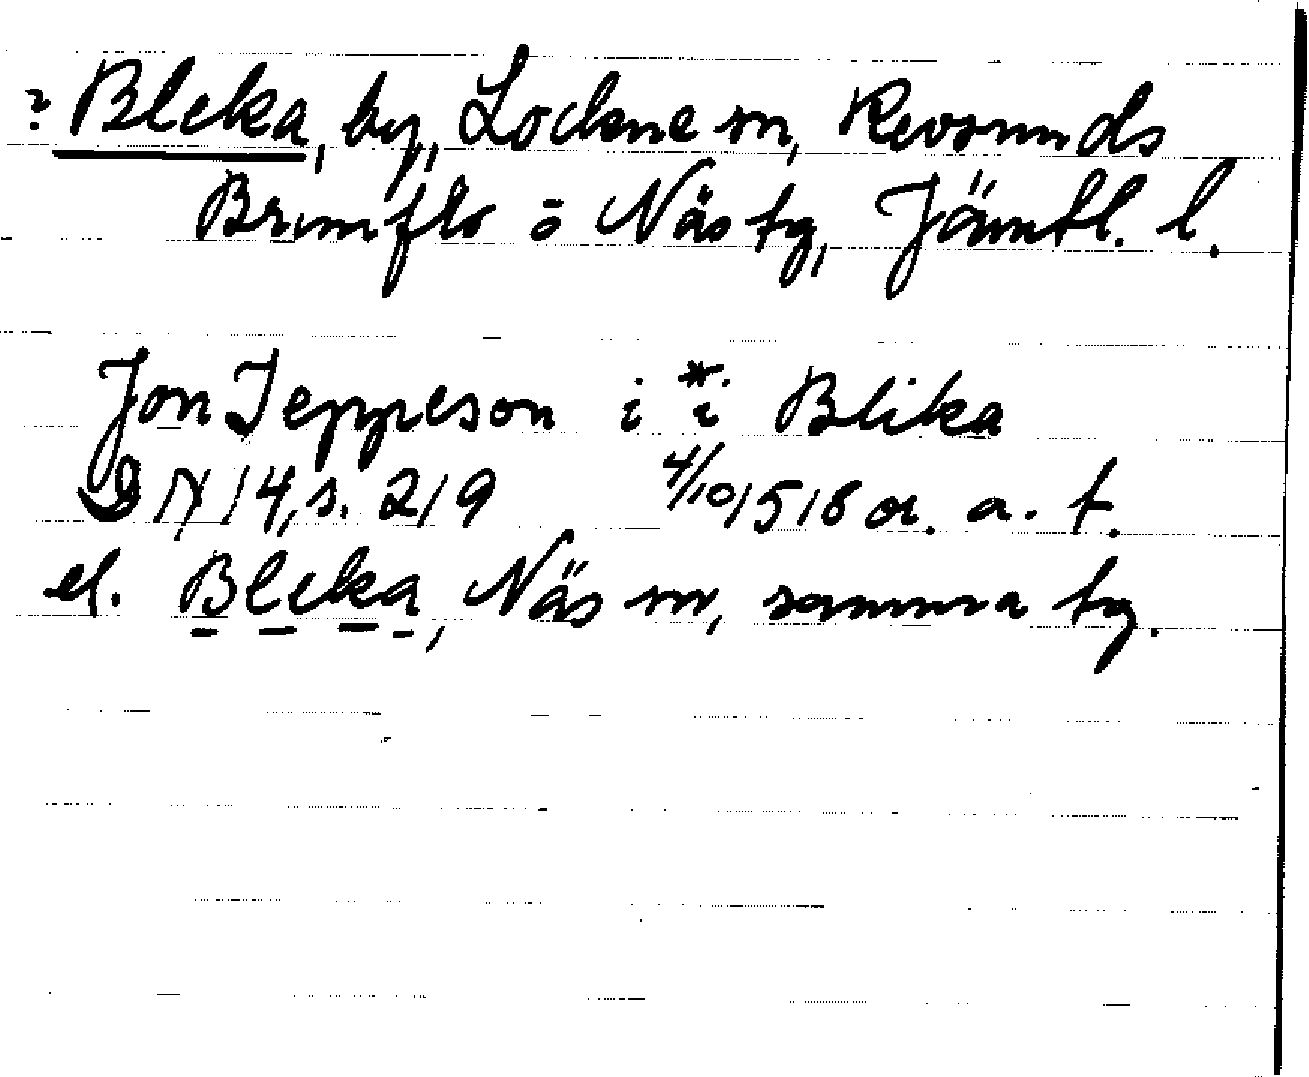 ? Bleka, by, Lockne sn, Revsunds
Brunflo o Näs tg, Jämtl. l.
Jon Jeppeson i *i Blika
DN 14, s. 219 4/10 1518 or. a. t.
el. Bleka, Näs sn, samma tg.